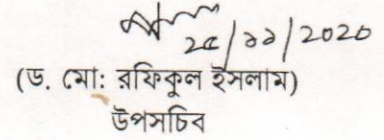 ২৫/১১/২০২০
(ড. মো: রফিকুল ইসলাম)
উপসচিব